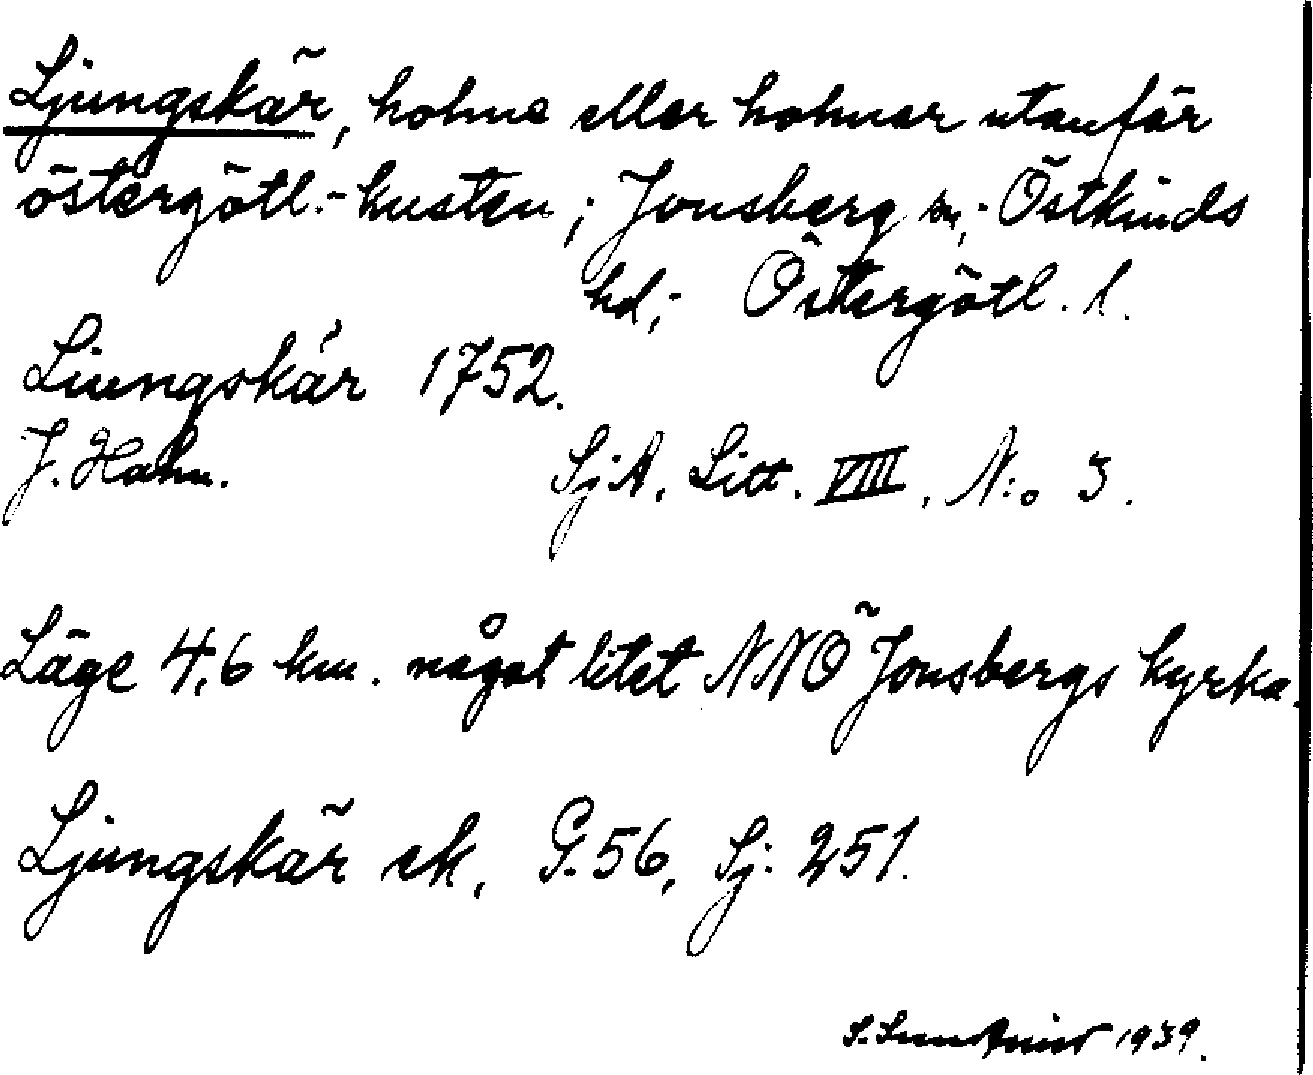 Ljungskär, holme eller holmar utanför
östergötl.-kusten; Jonsberg sn; Östkinds
hd; Östergötl. l.
Liungskär 1752.
J. Hahn. SjA. Litt. VIII, N:o 3.
Läge 4,6 km. något litet NNÖ Jonsbergs kyrka.
Ljungskär ek. G. 56, Sj. 251.
S. 1939.